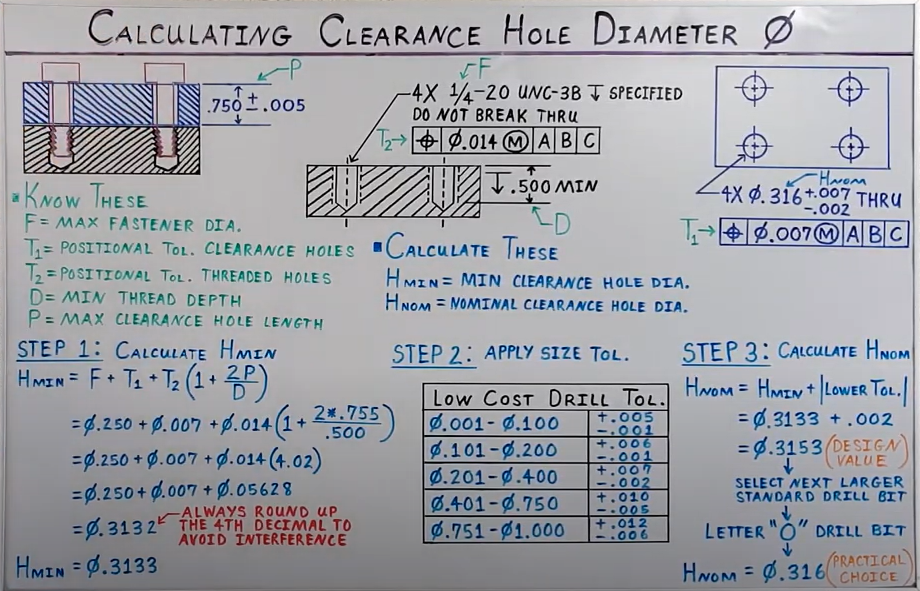 CALCULATING CLEARANCE HOLE DIAMETER Ø
P
.750 ± .005
F
4X 1/4-20 UNC-3B ↧ SPECIFIED
DO NOT BREAK THRU
T2→ ⌖ Ø.014 Ⓜ A B C
↧ .500 MIN
D
HNOM
4X Ø.316 +.007 -.002 THRU
T1→ ⌖ Ø.007 Ⓜ A B C
▪ KNOW THESE
F = MAX FASTENER DIA.
T1 = POSITIONAL TOL. CLEARANCE HOLES
T2 = POSITIONAL TOL. THREADED HOLES
D = MIN THREAD DEPTH
P = MAX CLEARANCE HOLE LENGTH
▪ CALCULATE THESE
HMIN = MIN CLEARANCE HOLE DIA.
HNOM = NOMINAL CLEARANCE HOLE DIA.
STEP 1: CALCULATE HMIN
HMIN = F + T1 + T2 (1 + 2P/D)
= Ø.250 + Ø.007 + Ø.014 (1 + 2*.755/.500)
= Ø.250 + Ø.007 + Ø.014 (4.02)
= Ø.250 + Ø.007 + Ø.05628
= Ø.3132 ← ALWAYS ROUND UP
THE 4TH DECIMAL TO
AVOID INTERFERENCE
HMIN = Ø.3133
STEP 2: APPLY SIZE TOL.
LOW COST DRILL TOL.
Ø.001 - Ø.100 +.005 -.001
Ø.101 - Ø.200 +.006 -.001
Ø.201 - Ø.400 +.007 -.002
Ø.401 - Ø.750 +.010 -.005
Ø.751 - Ø1.000 +.012 -.006
STEP 3: CALCULATE HNOM
HNOM = HMIN + |LOWER TOL.|
= Ø.3133 + .002
= Ø.3153 (DESIGN VALUE)
↓
SELECT NEXT LARGER
STANDARD DRILL BIT
↓
LETTER "O" DRILL BIT
↓
HNOM = Ø.316 (PRACTICAL CHOICE)